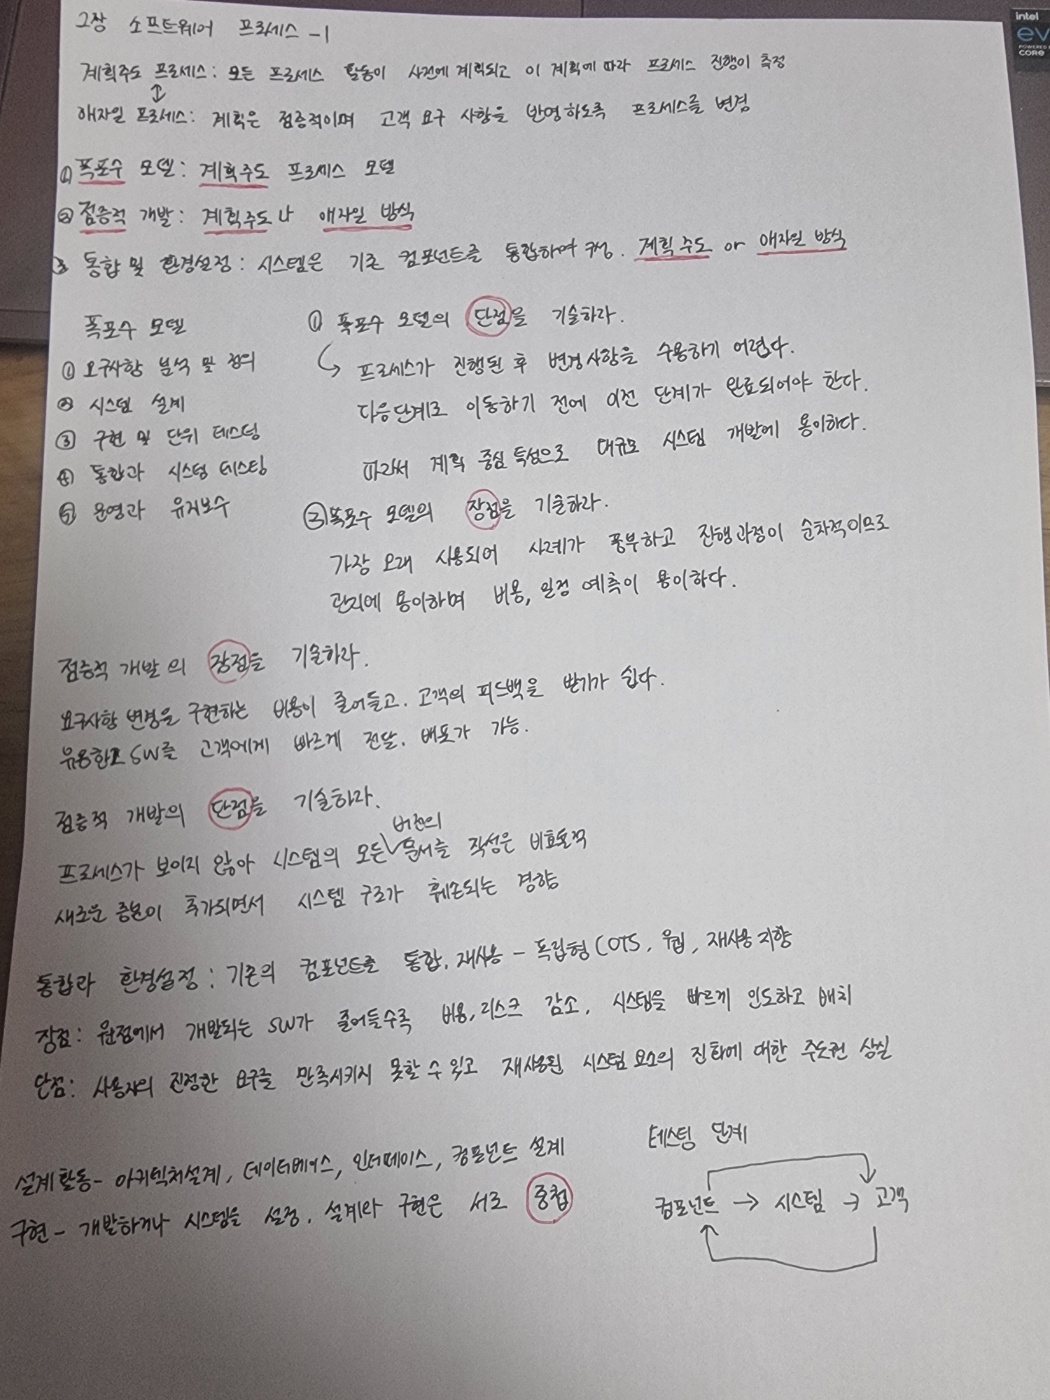 2장 소프트웨어 프로세스 -1
계획주도 프로세스: 모든 프로세스 활동이 사전에 계획되고 이 계획에 따라 프로세스 진행이 측정
↕
애자일 프로세스: 계획은 점증적이며 고객 요구 사항을 반영하도록 프로세스를 변경
① 폭포수 모델: 계획주도 프로세스 모델
② 점증적 개발: 계획주도나 애자일 방식
③ 통합 및 환경설정: 시스템은 기존 컴포넌트를 통합하여 구성. 계획주도 or 애자일 방식
폭포수 모델
① 요구사항 분석 및 정의
② 시스템 설계
③ 구현 및 단위 테스팅
④ 통합과 시스템 테스팅
⑤ 운영과 유지보수
① 폭포수 모델의 단점을 기술하라.
프로세스가 진행된 후 변경사항을 수용하기 어렵다.
다음단계로 이동하기 전에 이전 단계가 완료되어야 한다.
따라서 계획 중심 특성으로 대규모 시스템 개발에 용이하다.
② 폭포수 모델의 장점을 기술하라.
가장 오래 사용되어 사례가 풍부하고 진행과정이 순차적이므로
관리에 용이하며 비용, 일정 예측이 용이하다.
점증적 개발의 장점을 기술하라.
요구사항 변경을 구현하는 비용이 줄어들고. 고객의 피드백을 받기가 쉽다.
유용한 SW를 고객에게 빠르게 전달, 배포가 가능.
점증적 개발의 단점을 기술하라.
프로세스가 보이지 않아 시스템의 모든 버전의 문서를 작성은 비효율적
새로운 증분이 추가되면서 시스템 구조가 훼손되는 경향
통합과 환경설정: 기존의 컴포넌트를 통합, 재사용 - 독립형 COTS, 웹, 재사용 지향
장점: 원점에서 개발되는 SW가 줄어들수록 비용, 리스크 감소, 시스템을 빠르게 인도하고 배치
단점: 사용자의 진정한 요구를 만족시키지 못할 수 있고 재사용된 시스템 요소의 진화에 대한 주도권 상실
설계활동- 아키텍처설계, 데이터베이스, 인터페이스, 컴포넌트 설계
구현- 개발하거나 시스템을 설정. 설계와 구현은 서로 중첩
테스팅 단계
컴포넌트 → 시스템 → 고객
intel
POWERED BY
CORE